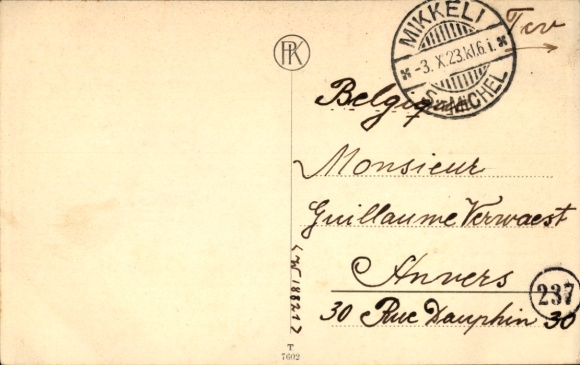 MIKKELI
-3.X.23.kl.6.i.
S:T MICHEL
Tcv
PK
Belgique
Monsieur
Guillaume Verwaest
Anvers
237
30 Rue Dauphin 30
T
7602